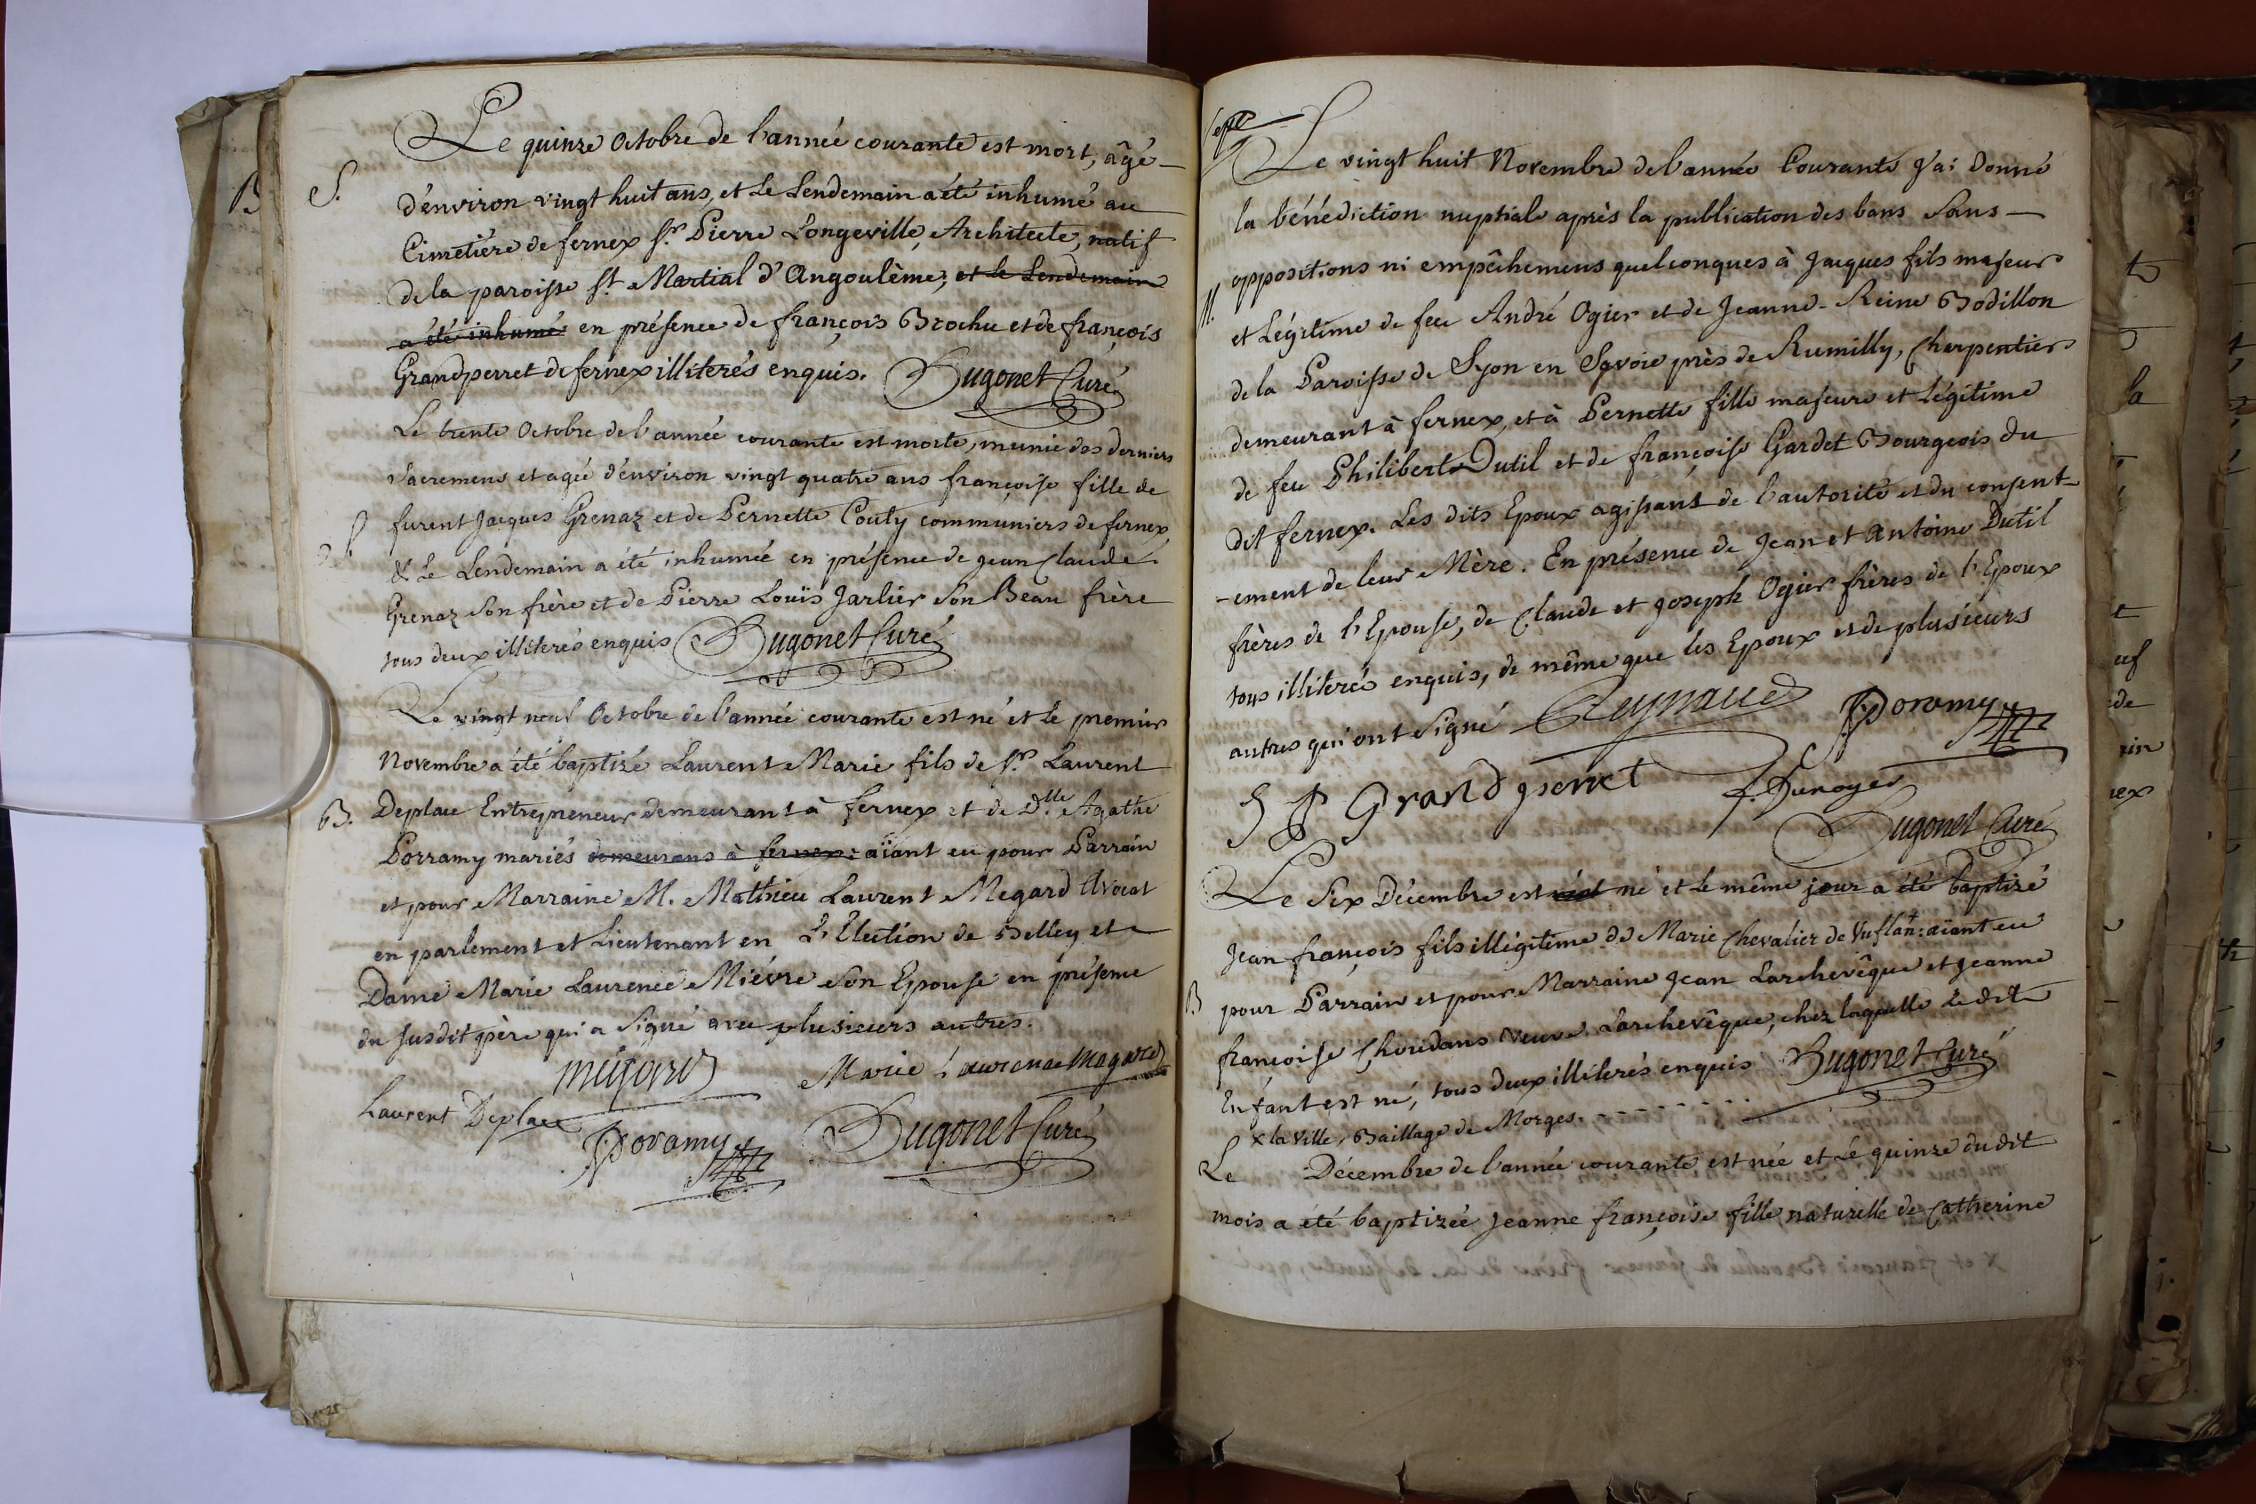 Le quinze Octobre de l'année courante est mort, âgé
S. d'environ vingt huit ans, et le Lendemain a été inhumé au
Cimetière de fernex Sr. Pierre Longeville, Architecte, natif
de la paroisse St. Martial d'Angoulème, et le Lendemain
a été inhumé en présence de françois Brochu et de françois
Grandperret de fernex illiterés enquis. Hugonet Curé
Le trente Octobre de l'année courante est morte, munie des derniers
Sacremens et agée d'environ vingt quatre ans françoise fille de
furent Jacques Grenaz et de Pernette Couty communiers de fernex
& Le Lendemain a été inhumée en présence de jean Claude
Grenaz son frère et de Pierre Louïs Jarlier son Beau frère
tous deux illiterés enquis Hugonet Curé
Le vingt neuf Octobre de l'année courante est né et le premier
Novembre a été baptisé Laurent Marie fils de Sr. Laurent
B. Deplace Entrepreneur demeurant à fernex et de Dlle. Agathe
Porramy mariés demeurans à fernex: aïant eu pour Parrain
et pour Marraine M. Mathieu Laurent Megard Avocat
en parlement et Lieutenant en L'Election de Belley et
Dame Marie Laurence Mièvre son Epouse en présence
du susdit père qui a signé avec plusieurs autres.
Megard Marie Laurence Megard
Laurent Deplace
Poramy Hugonet Curé
Sept
Le vingt huit Novembre de l'année Courante j'ai Donné
la bénédiction nuptiale après la publication des bans sans
oppositions ni empêchemens quelconques à Jacques fils majeur
M. et Légitime de feu André Ogier et de Jeanne-Reine Bodillon
de la Paroisse de Syon en Savoie près de Rumilly, Charpentier
demeurant à fernex, et à Pernette fille majeure et légitime
de feu Philibert Dutil et de françoise Gardet Bourgeois du
dit fernex. Les dits Epoux agissans de l'autorité et du consent-
-ement de leur Mère. En présence de Jean et Antoine Dutil
frères de l'Epouse, de Claude et joseph Ogier frères de l'Epoux
tous illiterés enquis, de même que les Epoux et de plusieurs
autres qui ont signé Reynaud Poramy
Grandperret Dunoyer
Hugonet Curé
Le six Décembre est né et le même jour a été baptizé
Jean françois fils illégitime de Marie Chevalier de Vuflan+: aïant eu
B pour Parrain et pour Marraine Jean Larchevêque et Jeanne
françoise Choudans veuve Larchevêque, chez laquelle le dit
Enfant est né, tous deux illiterés enquis Hugonet Curé
x la ville, Baillage de Morges.
Le Décembre de l'année courante est née et le quinze du dit
mois a été baptizée Jeanne françoise fille naturelle de Catherine